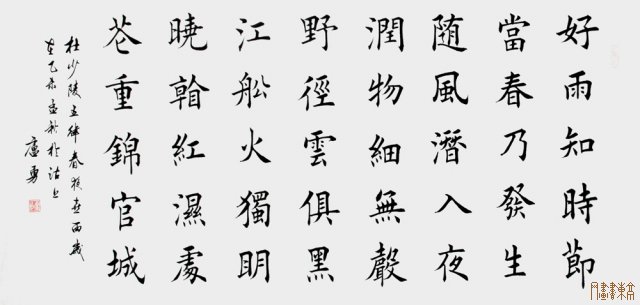 好雨知時節
當春乃發生
随風潛入夜
潤物細無聲
野徑雲俱黑
江船火獨明
曉看紅濕處
花重錦官城
杜少陵五律春夜喜雨歲
在乙孟秋於沽上
盧勇